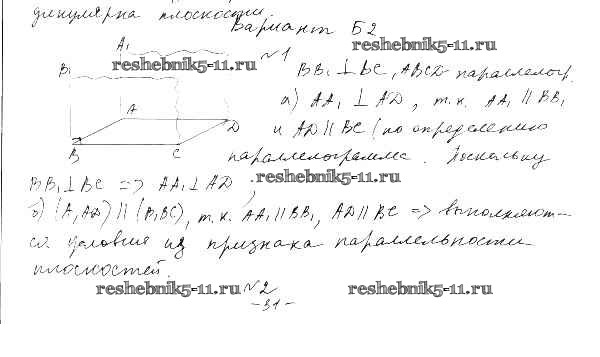 дикулярна плоскости.
Вариант Б2
reshebnik5-11.ru
A₁
reshebnik5-11.ru
№1
B₁
BB₁ ⊥ BC, ABCD параллелогр.
A
а) AA₁ ⊥ AD, т.к. AA₁ ∥ BB₁
D
и AD ∥ BC (по определению
B
C
параллелограмма. Поскольку
reshebnik5-11.ru
BB₁ ⊥ BC => AA₁ ⊥ AD,
б) (A₁AD) ∥ (B₁BC), т.к. AA₁ ∥ BB₁, AD ∥ BC => выполняют-
ся условия из признака параллельности
плоскостей.
reshebnik5-11.ru
№2
reshebnik5-11.ru
-31-